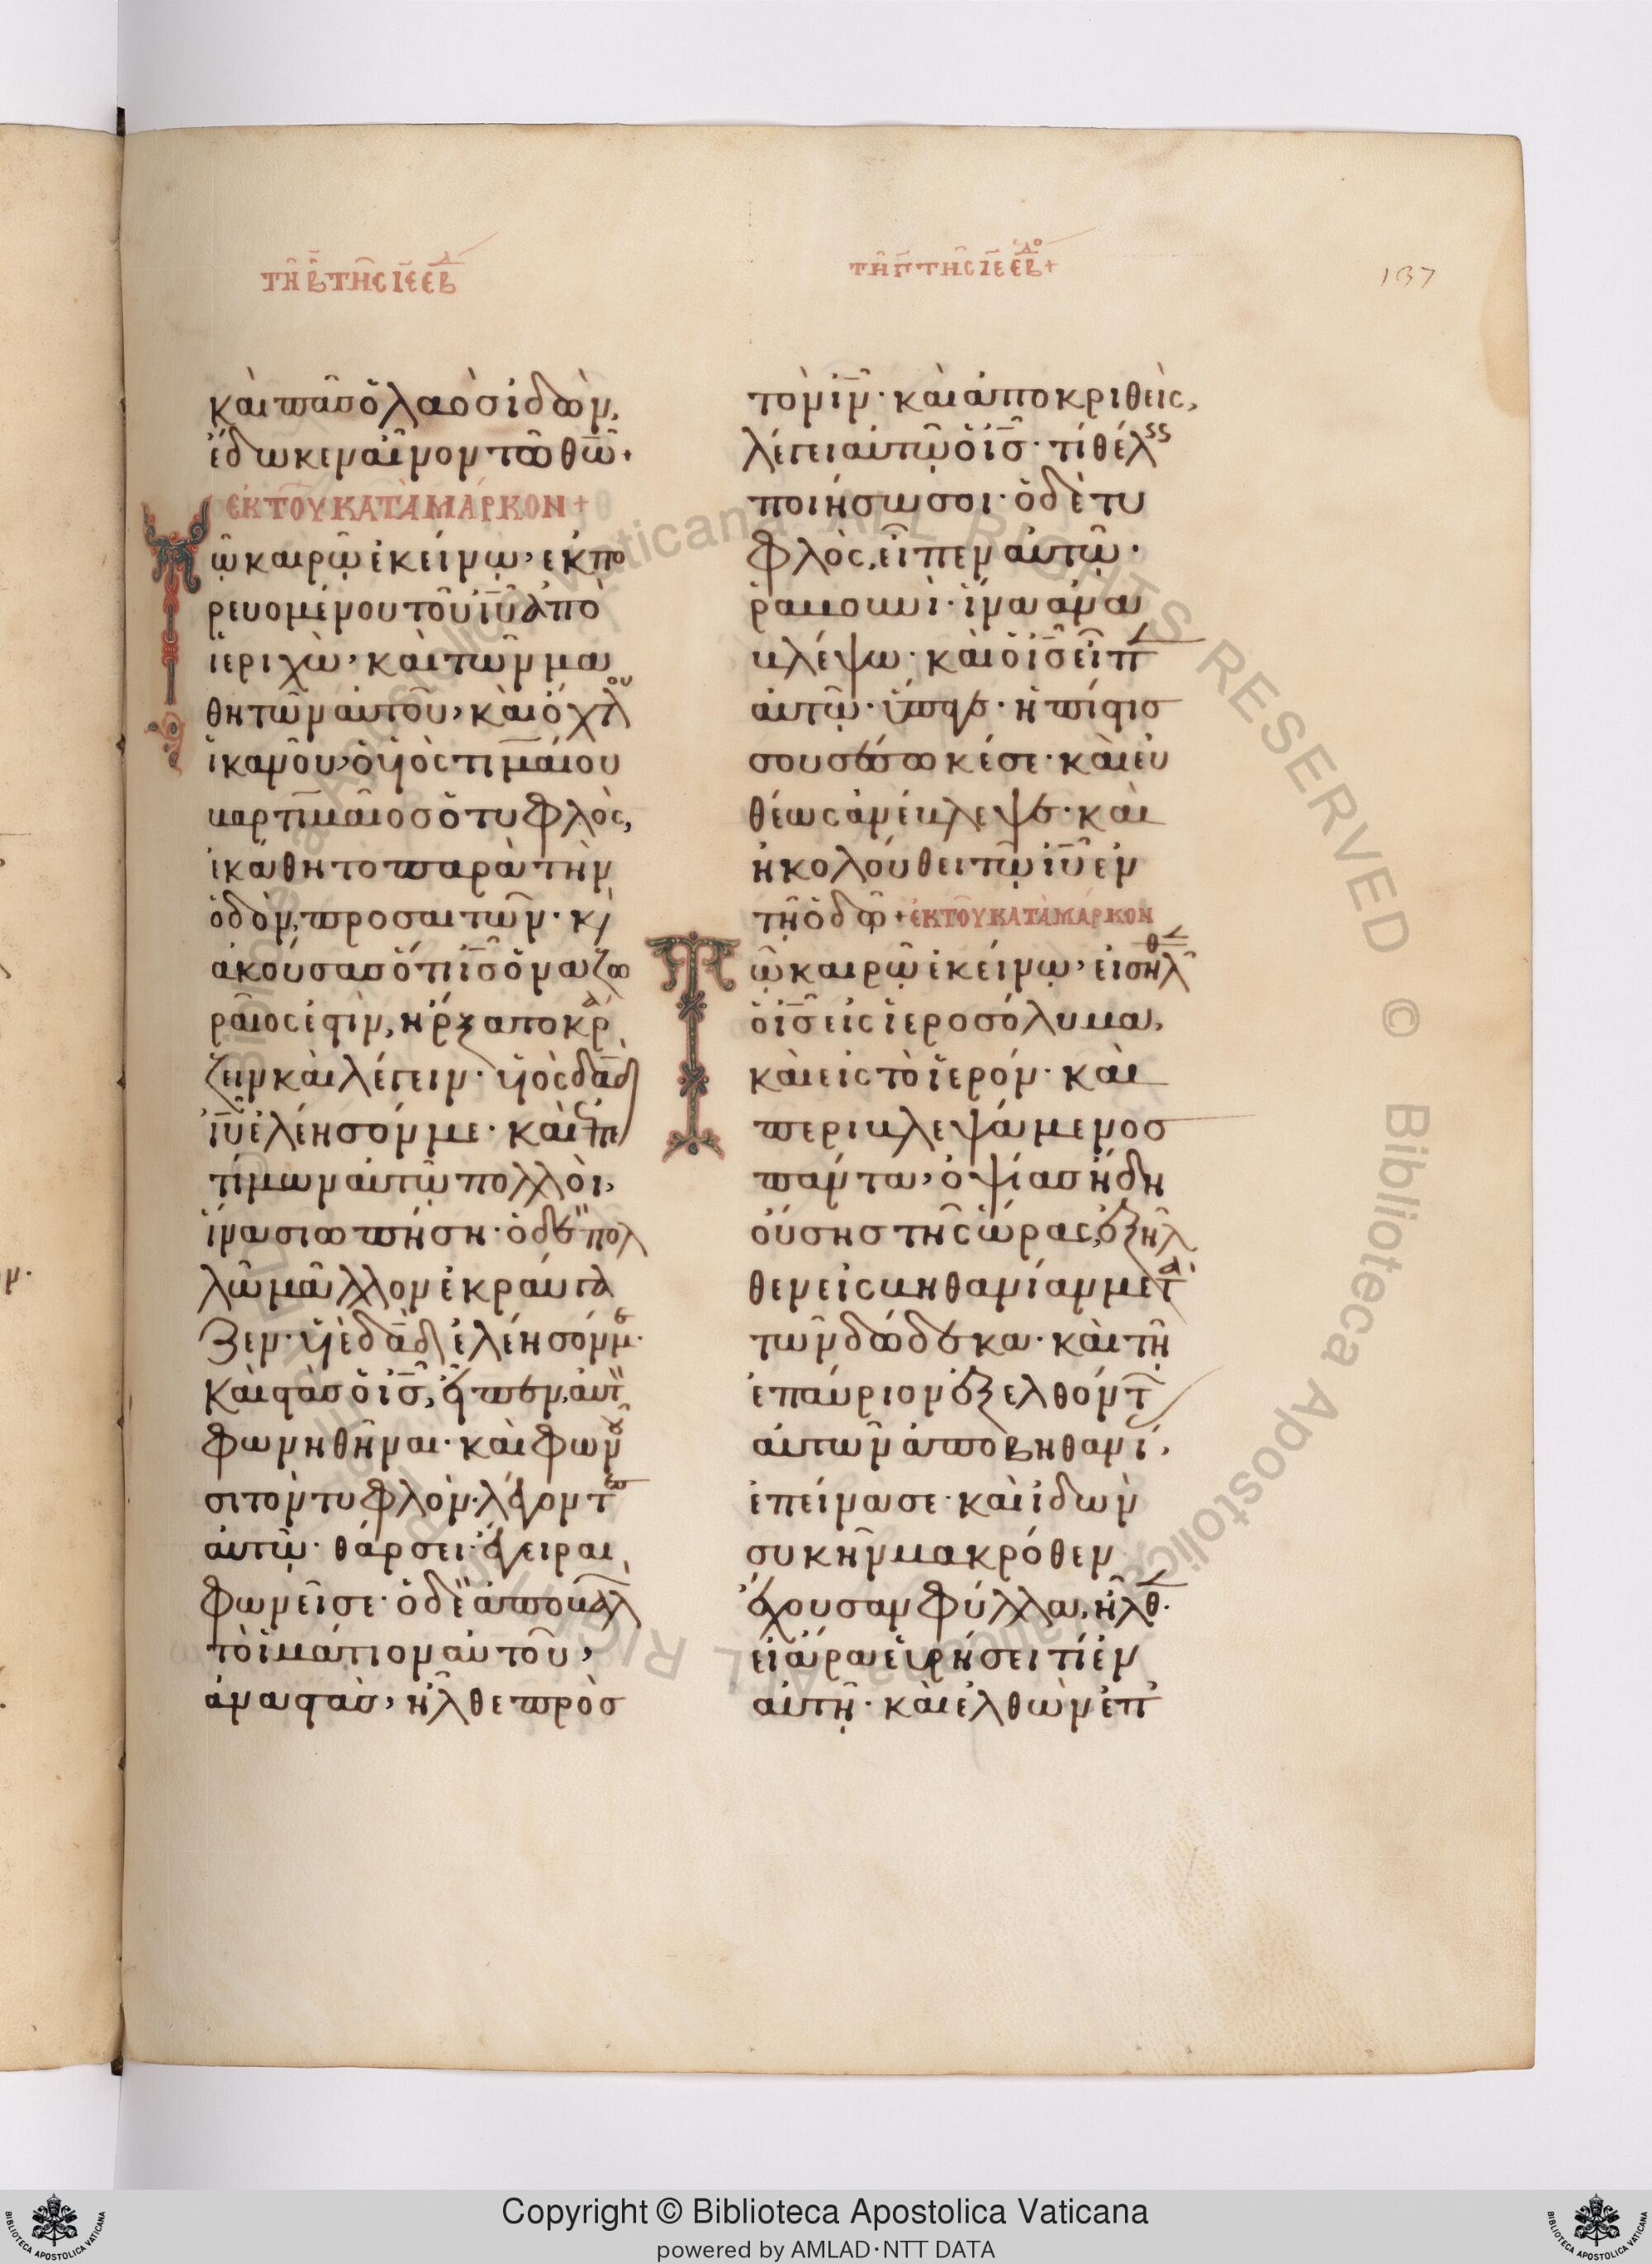 ΤΗ Β ΤΗΣ ΙΕ ΕΒΔ
ΤΗ Γ ΤΗΣ ΙΕ ΕΒΔΟ +
137
καὶ πᾶσ ὁ λαὸσ ἰδὼν,
ἔδωκεν αἶνον τῶ θῶ +
ΕΚ ΤΟΥ ΚΑΤΑ ΜΑΡΚΟΝ +
Τῷ καιρῷ ἐκείνῳ, ἐκπο
ρευομένου τοῦ ἰῦ ἀπὸ
ἱεριχὼ, καὶ τῶν μα
θητῶν αὐτοῦ, καὶ ὄχλου
ἱκανοῦ, ὁ ὑιὸς τιμαίου
βαρτίμαιοσ ὁ τυφλὸς,
ἐκάθητο παρὰ τὴν
ὁδὸν, προσαιτῶν· κὶ
ἀκούσασ ὅτι ἰσ ὁ ναζω
ραῖος ἐστὶν, ἤρξατο κρά
ζειν καὶ λέγειν· ὑιὸς δαδ
ἰῦ ἐλέησόν με· καὶ ἐπε
τίμων αὐτῷ πολλοὶ,
ἵνα σιωπήση· ὁ δὲ πολ
λῶ μᾶλλον ἐκραύγα
ζεν· ὑιὲ δαδ ἐλέησόν με·
καὶ στὰσ ὁ ἰσ, εἶπεν, αὐτ
φωνηθῆναι· καὶ φωνοῦ
σι τὸν τυφλὸν· λέγοντεσ
αὐτῷ· θάρσει· ἔγειραι,
φωνεῖ σε· ὁ δὲ ἀποβαλ
τὸ ἱμάτιον αὐτοῦ,
ἀναστὰσ, ἦλθε πρὸσ
τὸν ἰν· καὶ ἀποκριθεὶς,
λέγει αὐτῷ ὁ ἰσ· τί θέλεις
ποιήσω σοι· ὁ δὲ τυ
φλὸς, εἶπεν αὐτῷ·
ῥαββουνὶ· ἵνα ἀνα
βλέψω· καὶ ὁ ἰσ εἶπεν
αὐτῷ· ὕπαγε· ἡ πίστισ
σου σέσωκέ σε· καὶ εὐ
θέως ἀνέβλεψε· καὶ
ἠκολούθει τῷ ἰῦ ἐν
τῇ ὁδῷ + ΕΚ ΤΟΥ ΚΑΤΑ ΜΑΡΚΟΝ
Τῷ καιρῷ ἐκείνῳ, εἰσῆλθεν
ὁ ἰσ εἰς ἱεροσόλυμα,
καὶ εἰς τὸ ἱερόν· καὶ
περιβλεψάμενοσ
πάντα, ὀψίασ ἤδη
οὔσησ τῆς ὥρας, ἐξῆλ
θεν εἰς βηθανίαν μετὰ
τῶν δώδεκα· καὶ τῇ
ἐπαύριον ἐξελθόντ
αὐτῶν ἀπὸ βηθανί,
ἐπείνασε· καὶ ἰδὼν
συκῆν μακρόθεν
ἔχουσαν φύλλα, ἦλθεν·
εἰ ἄρα εὑρήσει τί ἐν
αὐτῇ· καὶ ἐλθὼν ἐπ
Copyright © Biblioteca Apostolica Vaticana
powered by AMLAD·NTT DATA